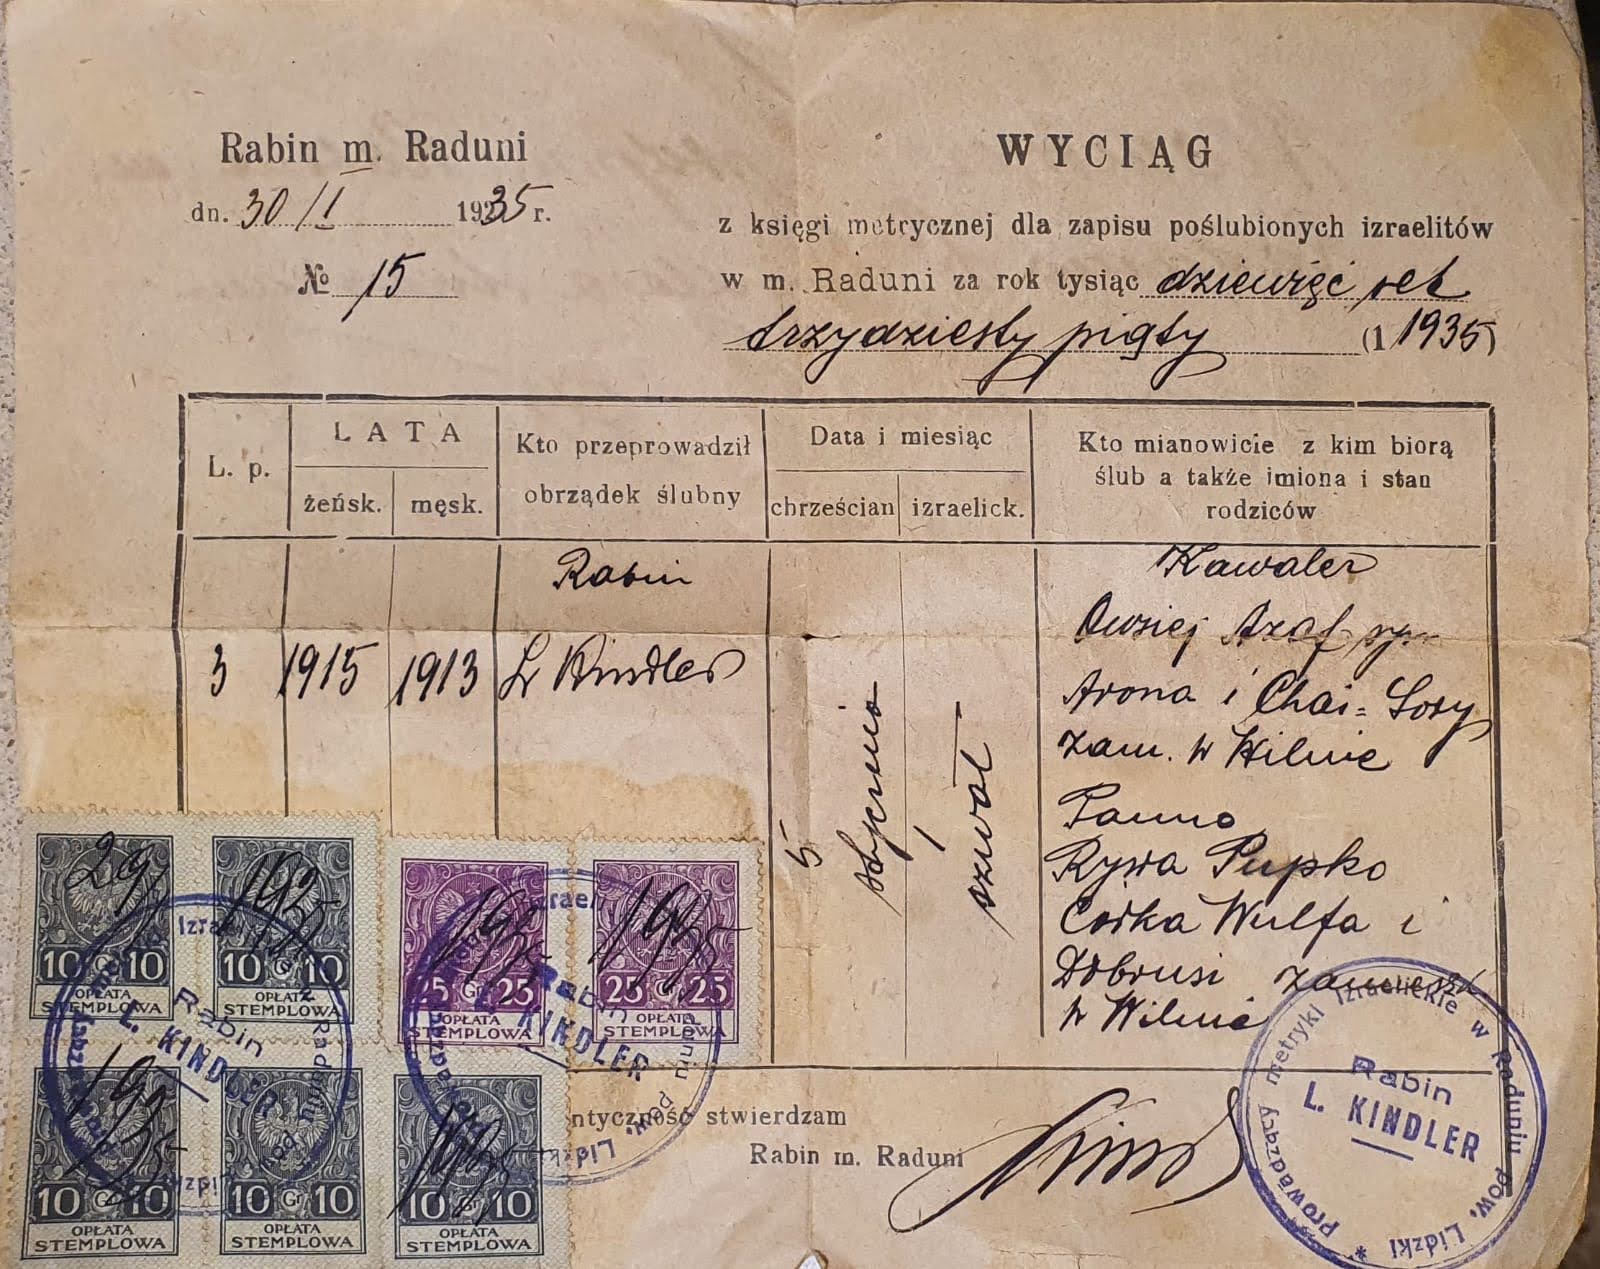 Rabin m. Raduni
dn. 30/I 1935 r.
№ 15
WYCIĄG
z księgi metrycznej dla zapisu poślubionych izraelitów
w m. Raduni za rok tysiąc dziewięć set
trzydziesty piąty (1 1935)
L. p.
LATA
żeńsk. męsk.
Kto przeprowadził
obrządek ślubny
Data i miesiąc
chrześcian izraelick.
Kto mianowicie z kim biorą
ślub a także imiona i stan
rodziców
3
1915
1913
Rabin
L. Kindler
5 stycznia
1 szwat
Kawaler
Owsiej Azaf syn
Arona i Chai-Sory
zam. w Wilnie
Panna
Rywa Pupko
Córka Wulfa i
Dobrusi zamieszk
w Wilnie
29/I 1935
10 Gr 10
OPŁATA
STEMPLOWA
10 Gr 10
OPŁATA
STEMPLOWA
1935
25 Gr 25
OPŁATA
STEMPLOWA
1935
25 Gr 25
OPŁATA
STEMPLOWA
1935
10 Gr 10
OPŁATA
STEMPLOWA
10 Gr 10
OPŁATA
STEMPLOWA
1935
10 Gr 10
OPŁATA
STEMPLOWA
Rabin
L. KINDLER
Rabin
L. KINDLER
ntyczność stwierdzam
Rabin m. Raduni
Prowadzący metryki Izraelickie w Raduniu pow. Lidzki *
Rabin
L. KINDLER